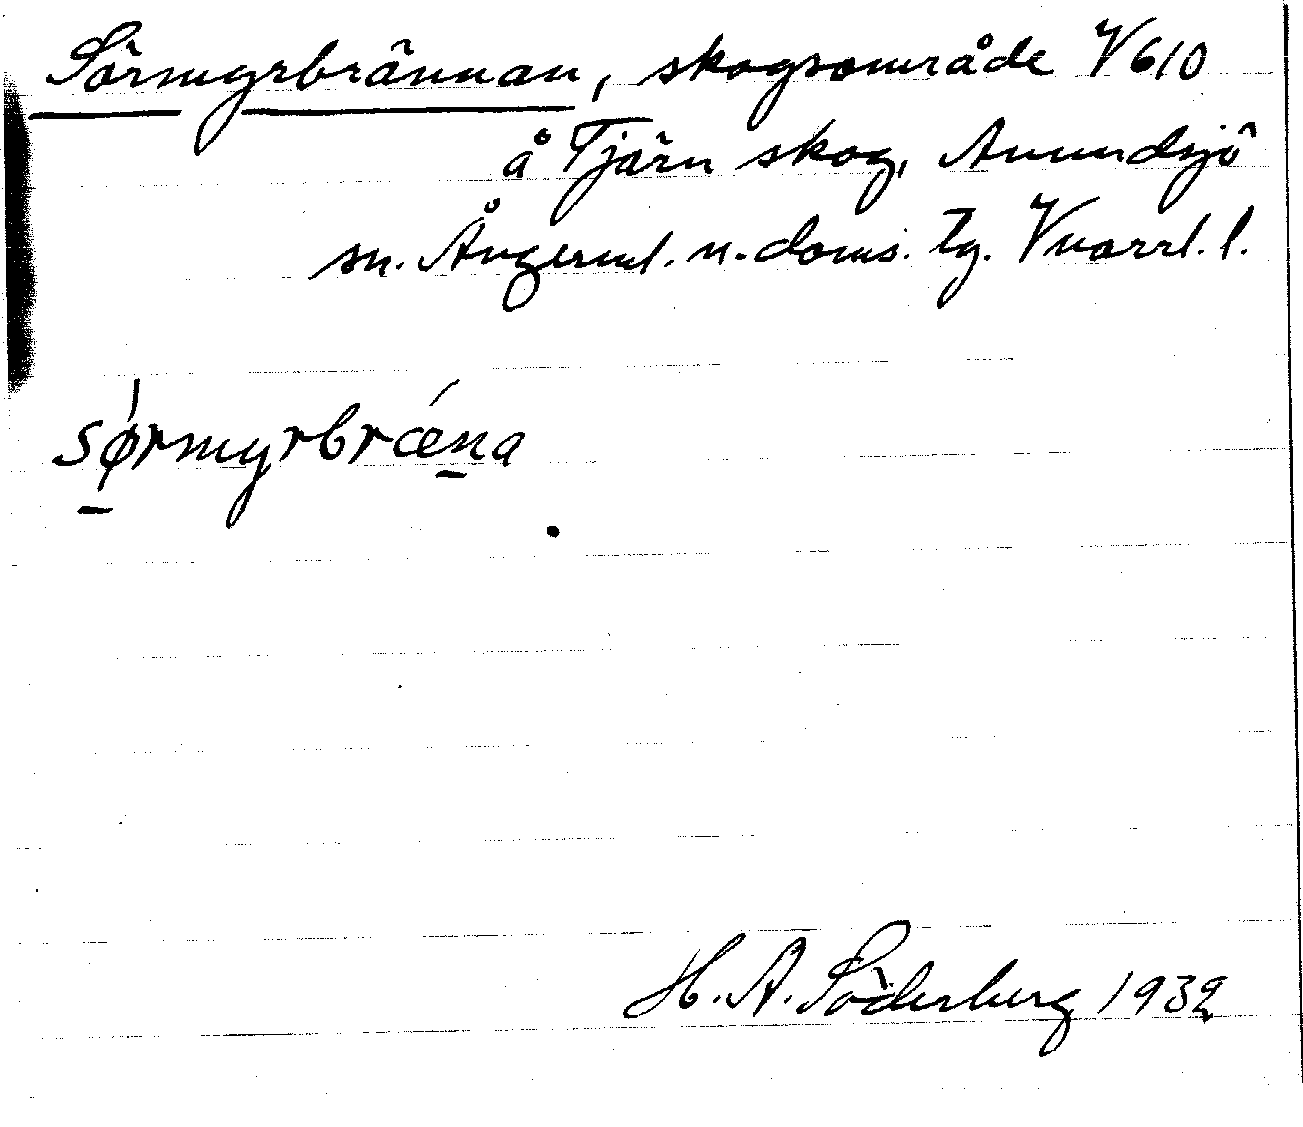 Sörmyrbrännan, skogsområde V610
å Tjärn skog, Anundsjö
sn. Ångerml. n. doms. tg. Vnorrl. l.
sørmyrbræna
H. A. Söderberg 1932